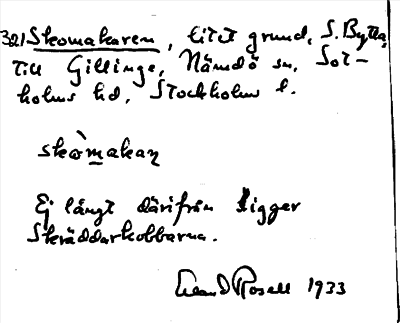 321 Skomakaren, litet grund, S. Bytta,
till Gillinge, Nämdö sn, Sot-
holms hd, Stockholms l.
skòmakaṇ
Ej långt därifrån ligger
Skräddarkobbarna.
Rosell 1933